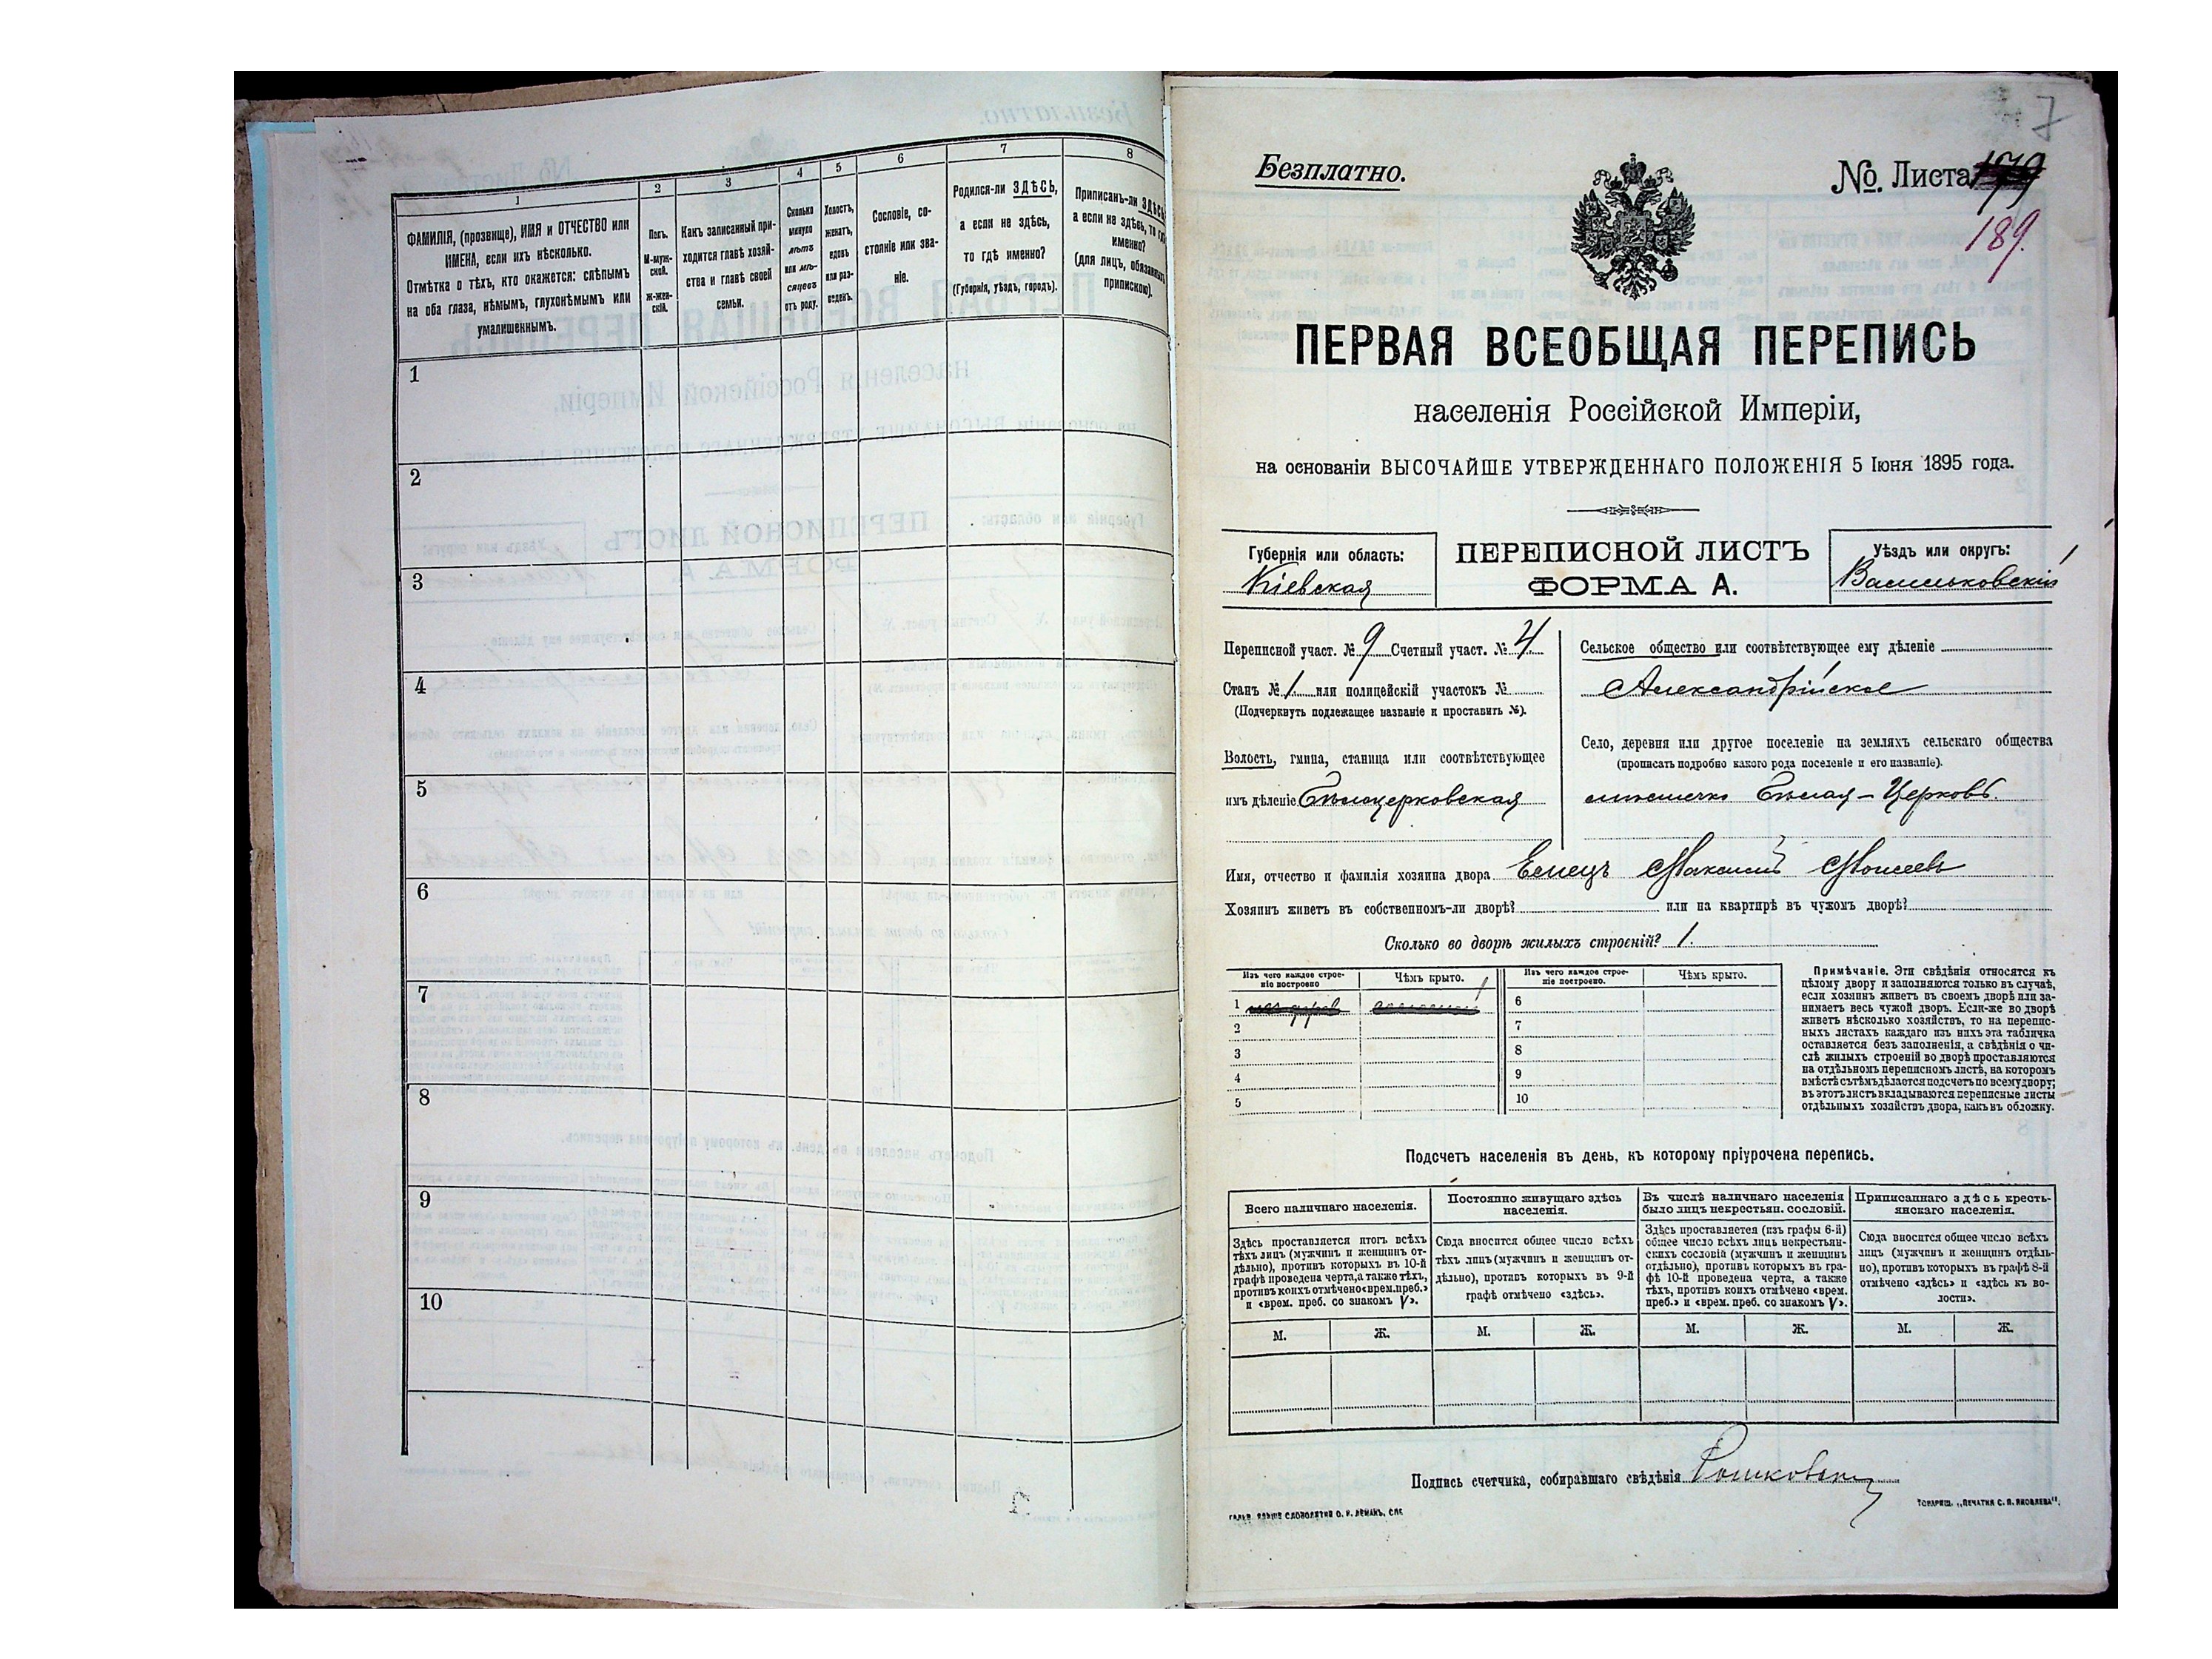 1
2
3
4
5
6
7
8
ФАМИЛІЯ, (прозвище), ИМЯ и ОТЧЕСТВО или
ИМЕНА, если ихъ нѣсколько.
Отмѣтка о тѣхъ, кто окажется: слѣпымъ
на оба глаза, нѣмымъ, глухонѣмымъ или
умалишеннымъ.
Полъ.
М-муж-
ской.
Ж-жен-
скій.
Какъ записанный при-
ходится главѣ хозяй-
ства и главѣ своей
семьи.
Сколько
минуло
лѣтъ
или мѣ-
сяцевъ
отъ роду.
Холостъ,
женатъ,
вдовъ
или раз-
веденъ.
Сословіе, со-
стояніе или зва-
ніе.
Родился-ли ЗДѢСЬ,
а если не здѣсь,
то гдѣ именно?
(Губернія, уѣздъ, городъ).
Приписанъ-ли ЗДѢСЬ,
а если не здѣсь, то гдѣ
именно?
(для лицъ, обязанныхъ
припискою).
1
2
3
4
5
6
7
8
9
10
7
Безплатно.
№. Листа 179
189.
ПЕРВАЯ ВСЕОБЩАЯ ПЕРЕПИСЬ
населенія Россійской Имперіи,
на основаніи ВЫСОЧАЙШЕ УТВЕРЖДЕННАГО ПОЛОЖЕНІЯ 5 Іюня 1895 года.
Губернія или область:
Кіевская
ПЕРЕПИСНОЙ ЛИСТЪ
ФОРМА А.
Уѣздъ или округъ:
Васильковскій
Переписной участ. № 9 Счетный участ. № 4
Станъ № 1 или полицейскій участокъ №
(Подчеркнуть подлежащее названіе и проставить №).
Волость, гмина, станица или соотвѣтствующее
имъ дѣленіе Бѣлоцерковская
Сельское общество или соотвѣтствующее ему дѣленіе
Александрійское
Село, деревня или другое поселеніе на земляхъ сельскаго общества
(прописать подробно какого рода поселеніе и его названіе).
мѣстечко Бѣлая-Церковь.
Имя, отчество и фамилія хозяина двора Емецъ Максимъ Моисеевъ
Хозяинъ живетъ въ собственномъ-ли дворѣ? или на квартирѣ въ чужомъ дворѣ?
Сколько во дворѣ жилыхъ строеній? 1.
Изъ чего каждое строе-
ніе построено
Чѣмъ крыто.
Изъ чего каждое строе-
ніе построено.
Чѣмъ крыто.
1
2
3
4
5
6
7
8
9
10
Примѣчаніе. Эти свѣдѣнія относятся къ
цѣлому двору и заполняются только въ случаѣ,
если хозяинъ живетъ въ своемъ дворѣ или за-
нимаетъ весь чужой дворъ. Если-же во дворѣ
живетъ нѣсколько хозяйствъ, то на перепис-
ныхъ листахъ каждаго изъ нихъ эта табличка
оставляется безъ заполненія, а свѣдѣнія о чи-
слѣ жилыхъ строеній во дворѣ проставляются
на отдѣльномъ переписномъ листѣ, на которомъ
вмѣстѣ съ тѣмъ дѣлается подсчетъ по всему двору;
въ этотъ листъ вкладываются переписные листы
отдѣльныхъ хозяйствъ двора, какъ въ обложку.
Подсчетъ населенія въ день, къ которому пріурочена перепись.
Всего наличнаго населенія.
Постоянно живущаго здѣсь
населенія.
Въ числѣ наличнаго населенія
было лицъ некрестьян. сословій.
Приписаннаго здѣсь кресть-
янскаго населенія.
Здѣсь проставляется итогъ всѣхъ
тѣхъ лицъ (мужчинъ и женщинъ от-
дѣльно), противъ которыхъ въ 10-й
графѣ проведена черта, а также тѣхъ,
противъ коихъ отмѣчено «врем. преб.»
и «врем. преб. со знакомъ V».
Сюда вносится общее число всѣхъ
тѣхъ лицъ (мужчинъ и женщинъ от-
дѣльно), противъ которыхъ въ 9-й
графѣ отмѣчено «здѣсь».
Здѣсь проставляется (изъ графы 6-й)
общее число всѣхъ лицъ некрестьян-
скихъ сословій (мужчинъ и женщинъ
отдѣльно), противъ которыхъ въ гра-
фѣ 10-й проведена черта, а также
тѣхъ, противъ коихъ отмѣчено «врем.
преб.» и «врем. преб. со знакомъ V».
Сюда вносится общее число всѣхъ
лицъ (мужчинъ и женщинъ отдѣль-
но), противъ которыхъ въ графѣ 8-й
отмѣчено «здѣсь» и «здѣсь къ во-
лости».
М. Ж. М. Ж. М. Ж. М. Ж.
Подпись счетчика, собиравшаго свѣдѣнія
ТОВАРИЩ. „ПЕЧАТНЯ С. П. ЯКОВЛЕВА".